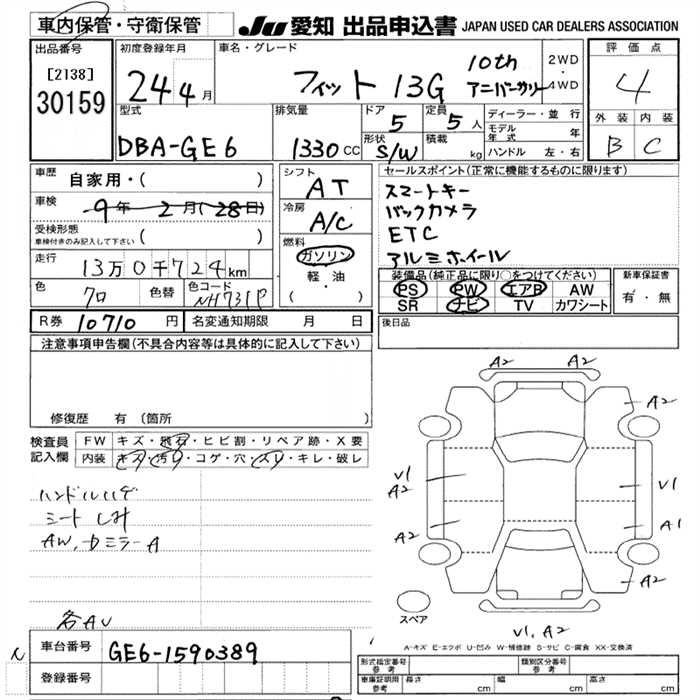 車内保管・守衛保管
JU 愛知 出品申込書 JAPAN USED CAR DEALERS ASSOCIATION
出品番号
[2138]
30159
初度登録年月
24 4月
車名・グレード
フィット 13G 10th アニバーサリー
2WD
・
4WD
評価点
4
外装 内装
B C
型式
DBA-GE6
排気量
1330 CC
ドア
5
形状
S/W
定員
5 人
積載
kg
ディーラー・並行
モデル年式 年
ハンドル 左・右
車歴
自家用・( )
車検
9年 2月(28日)
受検形態
車検付きのみ記入して下さい ( )
走行
13万0千724km
色
クロ
色替
色コード
NH731P
シフト
AT
冷房
A/C
燃料
ガソリン
軽・油
( )
セールスポイント(正常に機能するものに限ります)
スマートキー
バックカメラ
ETC
アルミホイール
装備品(純正品に限り○をつけてください)
PS PW エアB AW
SR ナビ TV カワシート
新車保証書
有・無
R券 10710 円
名変通知期限 月 日
後日品
注意事項申告欄(不具合内容等は具体的に記入して下さい)
修復歴 有 (箇所
検査員記入欄
FW キズ・飛石・ヒビ割・リペア跡・X要
内装 キズ・汚れ・コゲ・穴・スレ・キレ・破レ
ハンドルハゲ
シートしみ
AW,ドミラーA
各AU
A2 A2
A2
V1
A2
V1
A2
A1
A2
スペア
V1, A2
A-キズ E-エクボ U-凹み W-補修跡 S-サビ C-腐食 XX-交換済
車台番号
GE6-1590389
登録番号
形式指定番号 参考
類別区分番号 参考
車庫証明用 参考 長さ cm 幅 cm 高さ cm